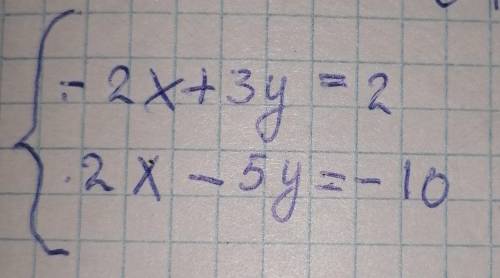 - 2x + 3y = 2
2x - 5y = - 10